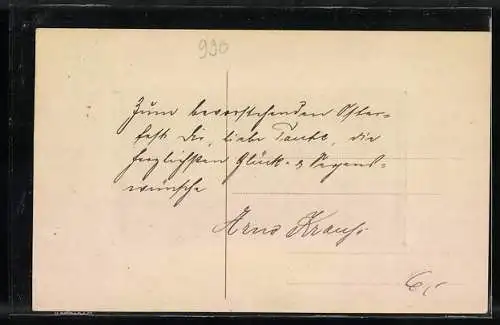 990
Zum bevorstehenden Oster-
fest Dir, liebe Tante, die
herzlichsten Glück- & Segens-
wünsche
Arno Krauß.